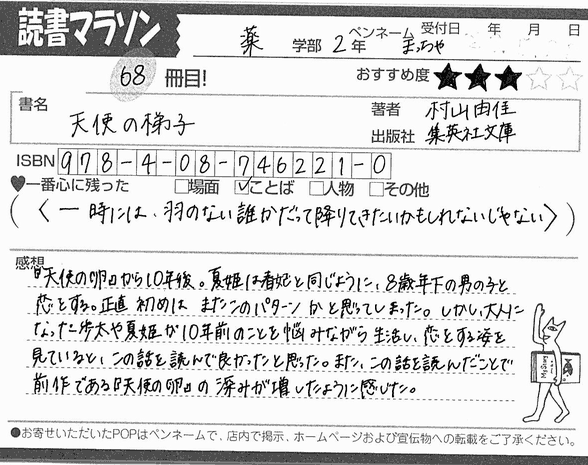 読書マラソン
薬 学部 2年 ペンネーム まっちゃ 受付日 年 月 日
68 冊目! おすすめ度 ★★★☆☆
書名 天使の梯子
著者 村山由佳
出版社 集英社文庫
ISBN 978-4-08-746221-0
♥一番心に残った □場面 ☑ことば □人物 □その他
(〈 ― 時には、羽のない誰かだって降りてきたいかもしれないじゃない〉)
感想
『天使の卵』から10年後。夏姫は春妃と同じように、8歳年下の男の子と
恋をする。正直 初めは またこのパターン かと思ってしまった。しかし、大人に
なった歩太や夏姫が10年前のことを悩みながら生活し、恋をする姿を
見ていると、この話を読んで良かったと思った。また、この話を読んだことで
前作である『天使の卵』の 深みが増したように感じた。
●お寄せいただいたPOPはペンネームで、店内で掲示、ホームページおよび宣伝物への転載をご了承ください。